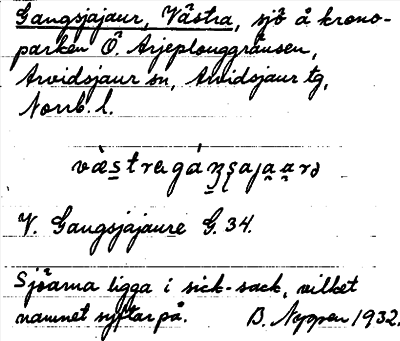 Gangsjajaur, Västra, sjö å krono-
parken Ö. Arjeplouggränsen,
Arvidsjaur sn, Arvidsjaur tg,
Norrb. l.
V. Gangsjajaure G. 34.
Sjöarna ligga i sick-sack, vilket
namnet syftar på. B. 1932.